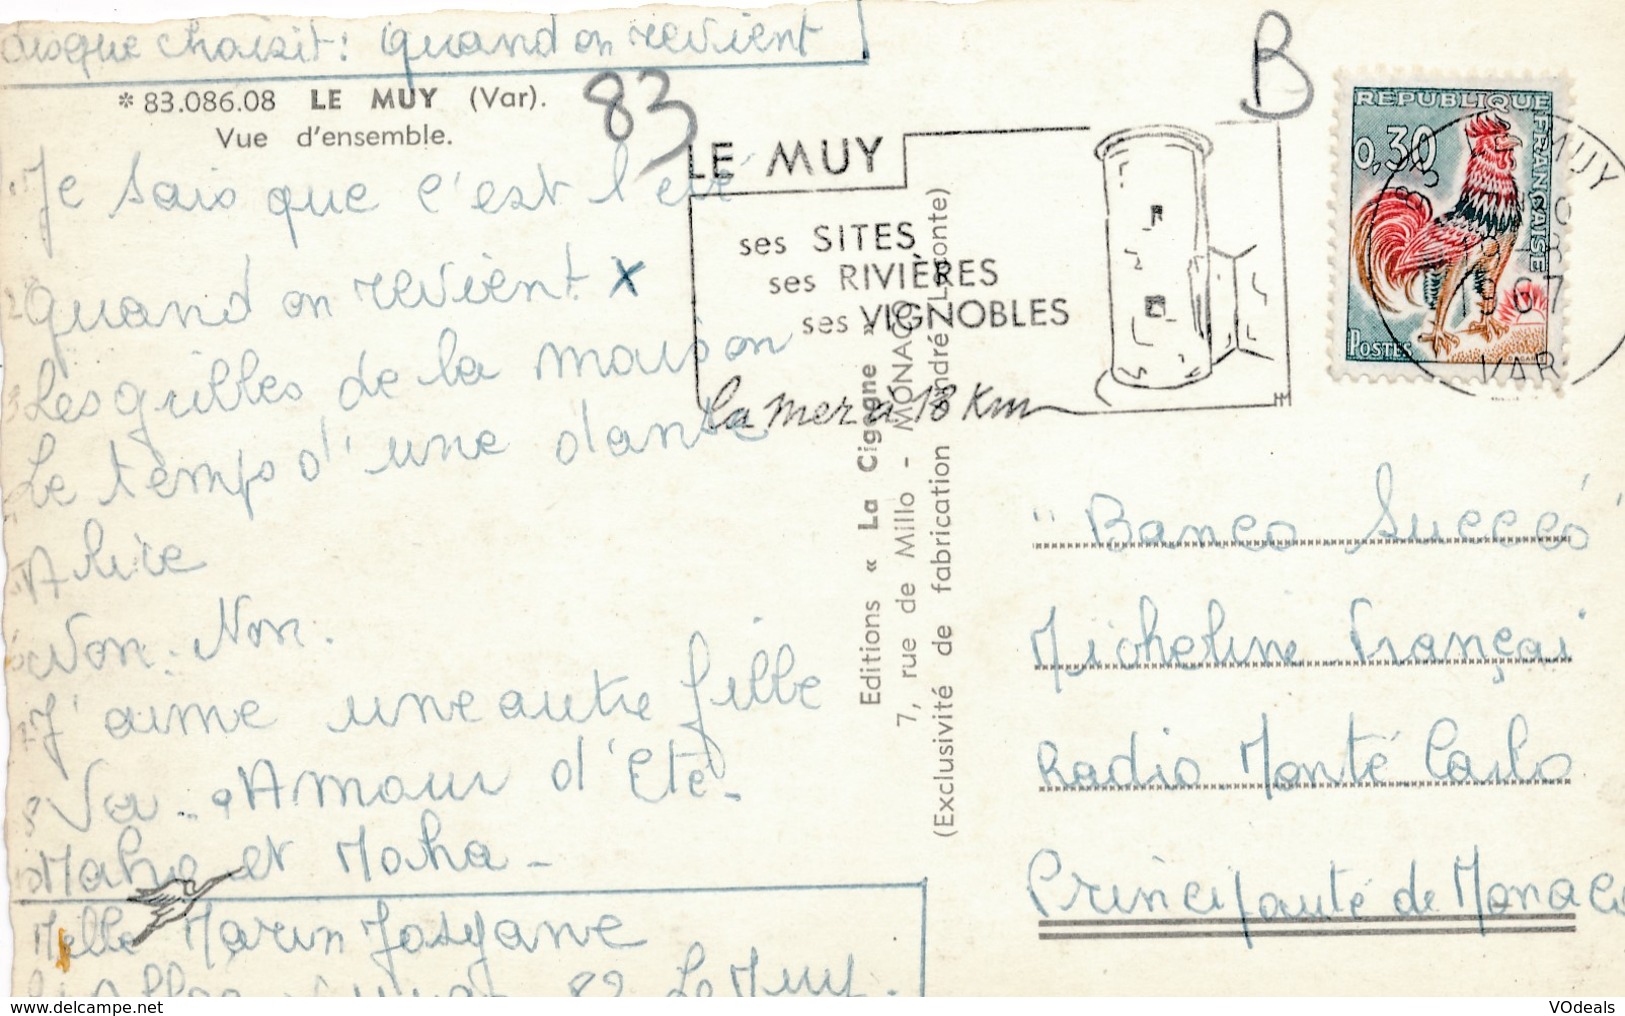 disque choisit: Quand on revient
* 83.086.08 LE MUY (Var).
Vue d'ensemble.
83
B
1 Je sais que c'est l'été
2 Quand on revient X
3 Les grilles de la maison
4 Le temps d'une danse
5 A lire
6 Non. Non.
7 J'aime une autre fille
8 Amour d'Eté -
10 et Moha -
Melle Marin Josyane
83 Le Muy.
LE MUY
ses SITES
ses RIVIÈRES
ses VIGNOBLES
la mer à 18 Km
Editions « La Cigogne »
7, rue de Millo - MONACO
(Exclusivité de fabrication André Leconte)
REPUBLIQUE FRANÇAISE
0,30
POSTES
LE MUY
1967
VAR
"Banco Succès"
Micheline Françai
Radio Monté Carlo
Principauté de Monaco
www.delcampe.net
VOdeals